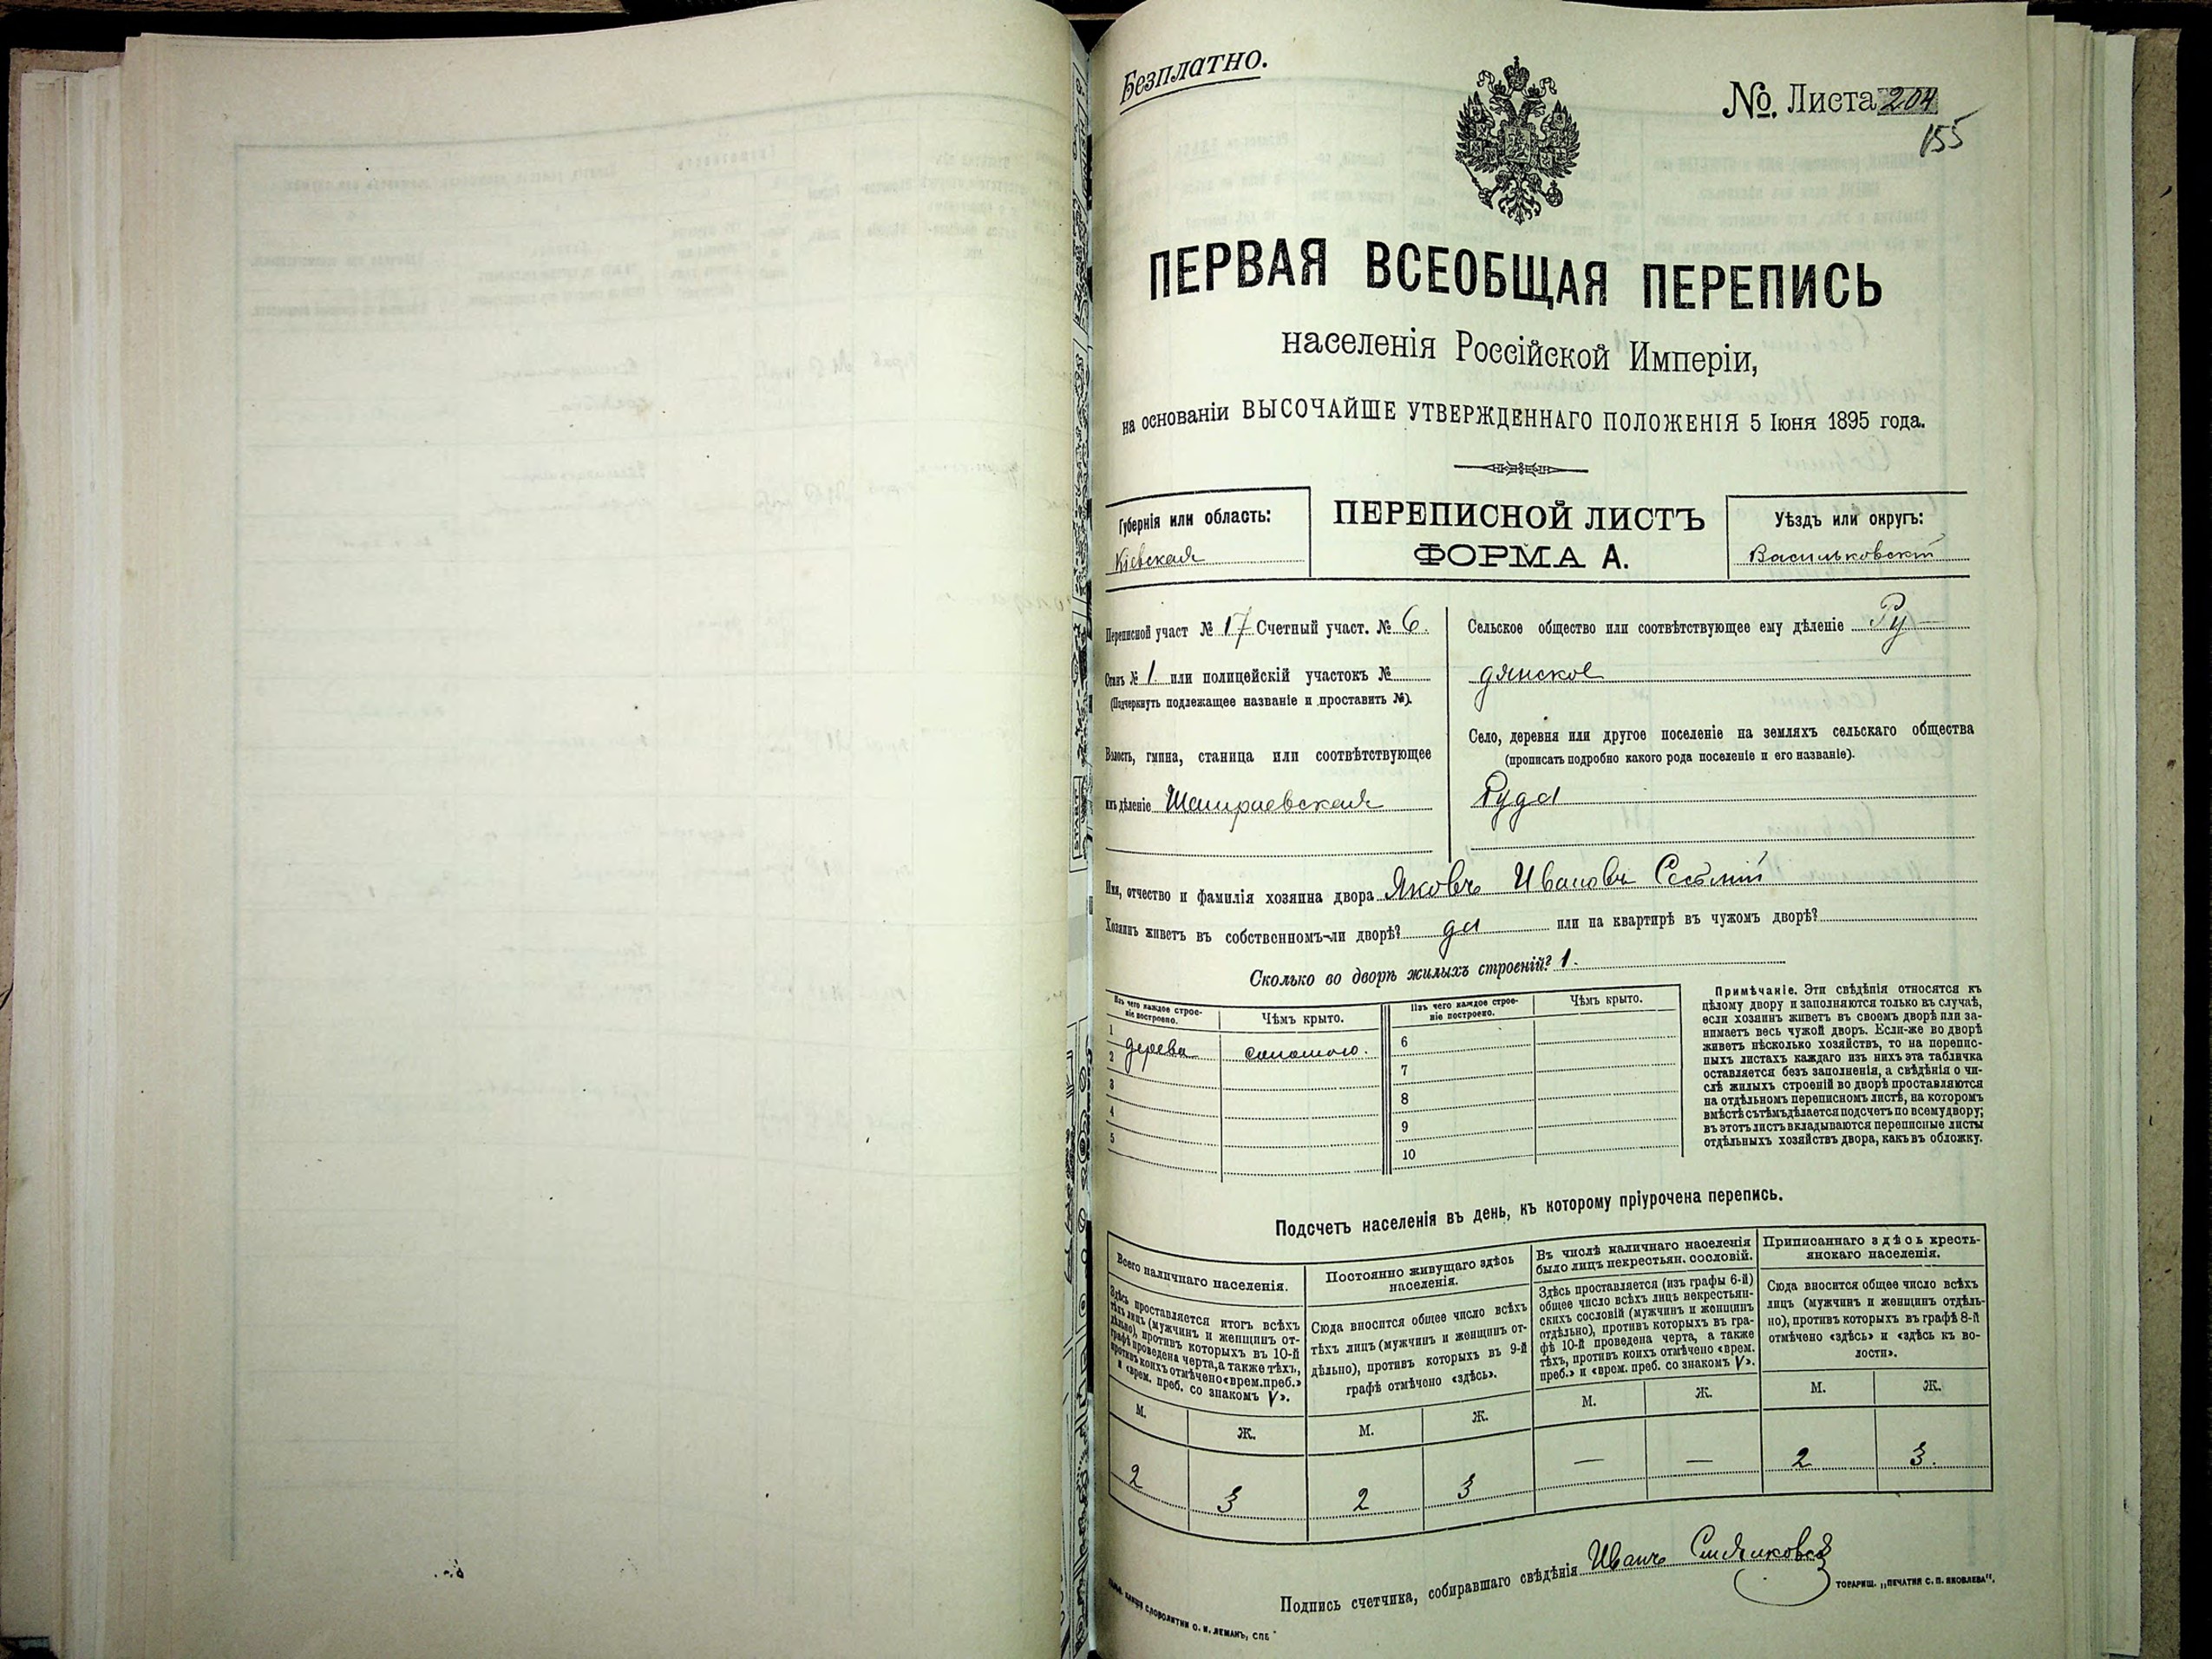 Безплатно.
№. Листа 204
155
ПЕРВАЯ ВСЕОБЩАЯ ПЕРЕПИСЬ
населенія Россійской Имперіи,
на основаніи ВЫСОЧАЙШЕ УТВЕРЖДЕННАГО ПОЛОЖЕНІЯ 5 Іюня 1895 года.
Губернія или область:
Кіевская
ПЕРЕПИСНОЙ ЛИСТЪ
ФОРМА А.
Уѣздъ или округъ:
Васильковскій
Переписной участ № 17 Счетный участ. № 6.
Станъ № 1 или полицейскій участокъ №
(Подчеркнуть подлежащее названіе и проставить №).
Волость, гмина, станица или соотвѣтствующее
имъ дѣленіе Шамраевская
Сельское общество или соотвѣтствующее ему дѣленіе Ру-
дянское
Село, деревня или другое поселеніе на земляхъ сельскаго общества
(прописать подробно какого рода поселеніе и его названіе).
Руда
Имя, отчество и фамилія хозяина двора Яковъ Ивановъ
Хозяинъ живетъ въ собственномъ-ли дворѣ? да или на квартирѣ въ чужомъ дворѣ?
Сколько во дворѣ жилыхъ строеній? 1.
Изъ чего каждое строе-
ніе построено.
Чѣмъ крыто.
Изъ чего каждое строе-
ніе построено.
Чѣмъ крыто.
1
дерева соломою.
2
3
4
5
6
7
8
9
10
Примѣчаніе. Эти свѣдѣнія относятся къ
цѣлому двору и заполняются только въ случаѣ,
если хозяинъ живетъ въ своемъ дворѣ или за-
нимаетъ весь чужой дворъ. Если-же во дворѣ
живетъ нѣсколько хозяйствъ, то на перепис-
ныхъ листахъ каждаго изъ нихъ эта табличка
оставляется безъ заполненія, а свѣдѣнія о чи-
слѣ жилыхъ строеній во дворѣ проставляются
на отдѣльномъ переписномъ листѣ, на которомъ
вмѣстѣ съ тѣмъ дѣлается подсчетъ по всему двору;
въ этотъ листъ вкладываются переписные листы
отдѣльныхъ хозяйствъ двора, какъ въ обложку.
Подсчетъ населенія въ день, къ которому пріурочена перепись.
Всего наличнаго населенія.
Здѣсь проставляется итогъ всѣхъ
тѣхъ лицъ (мужчинъ и женщинъ от-
дѣльно), противъ которыхъ въ 10-й
графѣ проведена черта, а также тѣхъ,
противъ коихъ отмѣчено «врем. преб.»
и «врем. преб. со знакомъ V».
М.
Ж.
2
3
Постоянно живущаго здѣсь
населенія.
Сюда вносится общее число всѣхъ
тѣхъ лицъ (мужчинъ и женщинъ от-
дѣльно), противъ которыхъ въ 9-й
графѣ отмѣчено «здѣсь».
М.
Ж.
2
3
Въ числѣ наличнаго населенія
было лицъ некрестьян. сословій.
Здѣсь проставляется (изъ графы 6-й)
общее число всѣхъ лицъ некрестьян-
скихъ сословій (мужчинъ и женщинъ
отдѣльно), противъ которыхъ въ гра-
фѣ 10-й проведена черта, а также
тѣхъ, противъ коихъ отмѣчено «врем.
преб.» и «врем. преб. со знакомъ V».
М.
Ж.
—
—
Приписаннаго здѣсь кресть-
янскаго населенія.
Сюда вносится общее число всѣхъ
лицъ (мужчинъ и женщинъ отдѣль-
но), противъ которыхъ въ графѣ 8-й
отмѣчено «здѣсь» и «здѣсь къ во-
лости».
М.
Ж.
2
3.
Подпись счетчика, собиравшаго свѣдѣнія Иванъ
СЛОВОЛИТНИ О. И. ЛЕМАНЪ, СПБ
ТОВАРИЩ. „ПЕЧАТНЯ С. П. ЯКОВЛЕВА“.